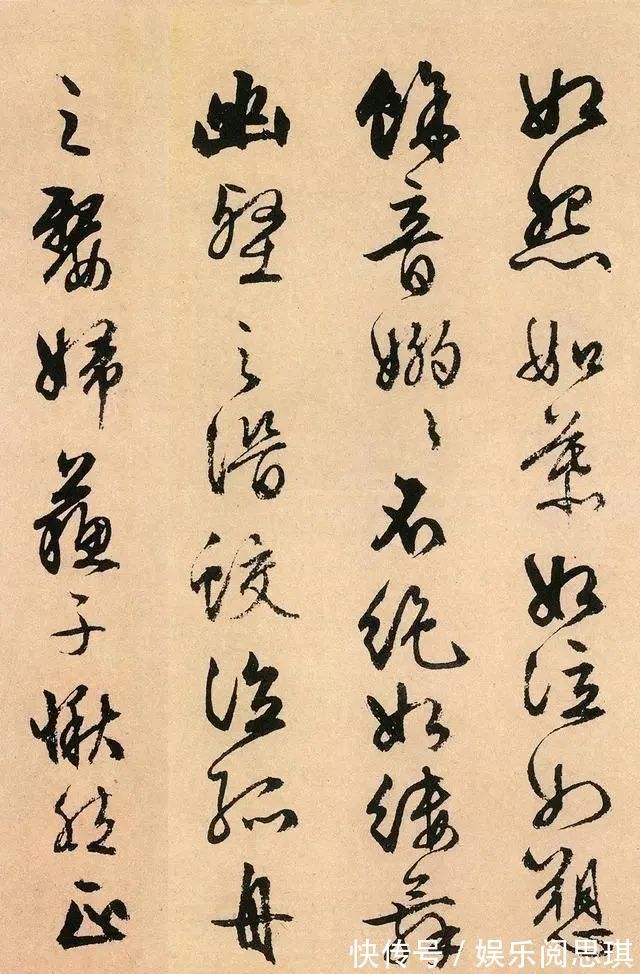 如怨如慕如泣如愬
餘音嫋々不絕如縷舞
幽壑之潛蛟泣孤舟
之嫠婦蘇子愀然正
快传号 / 娱乐阅思琪